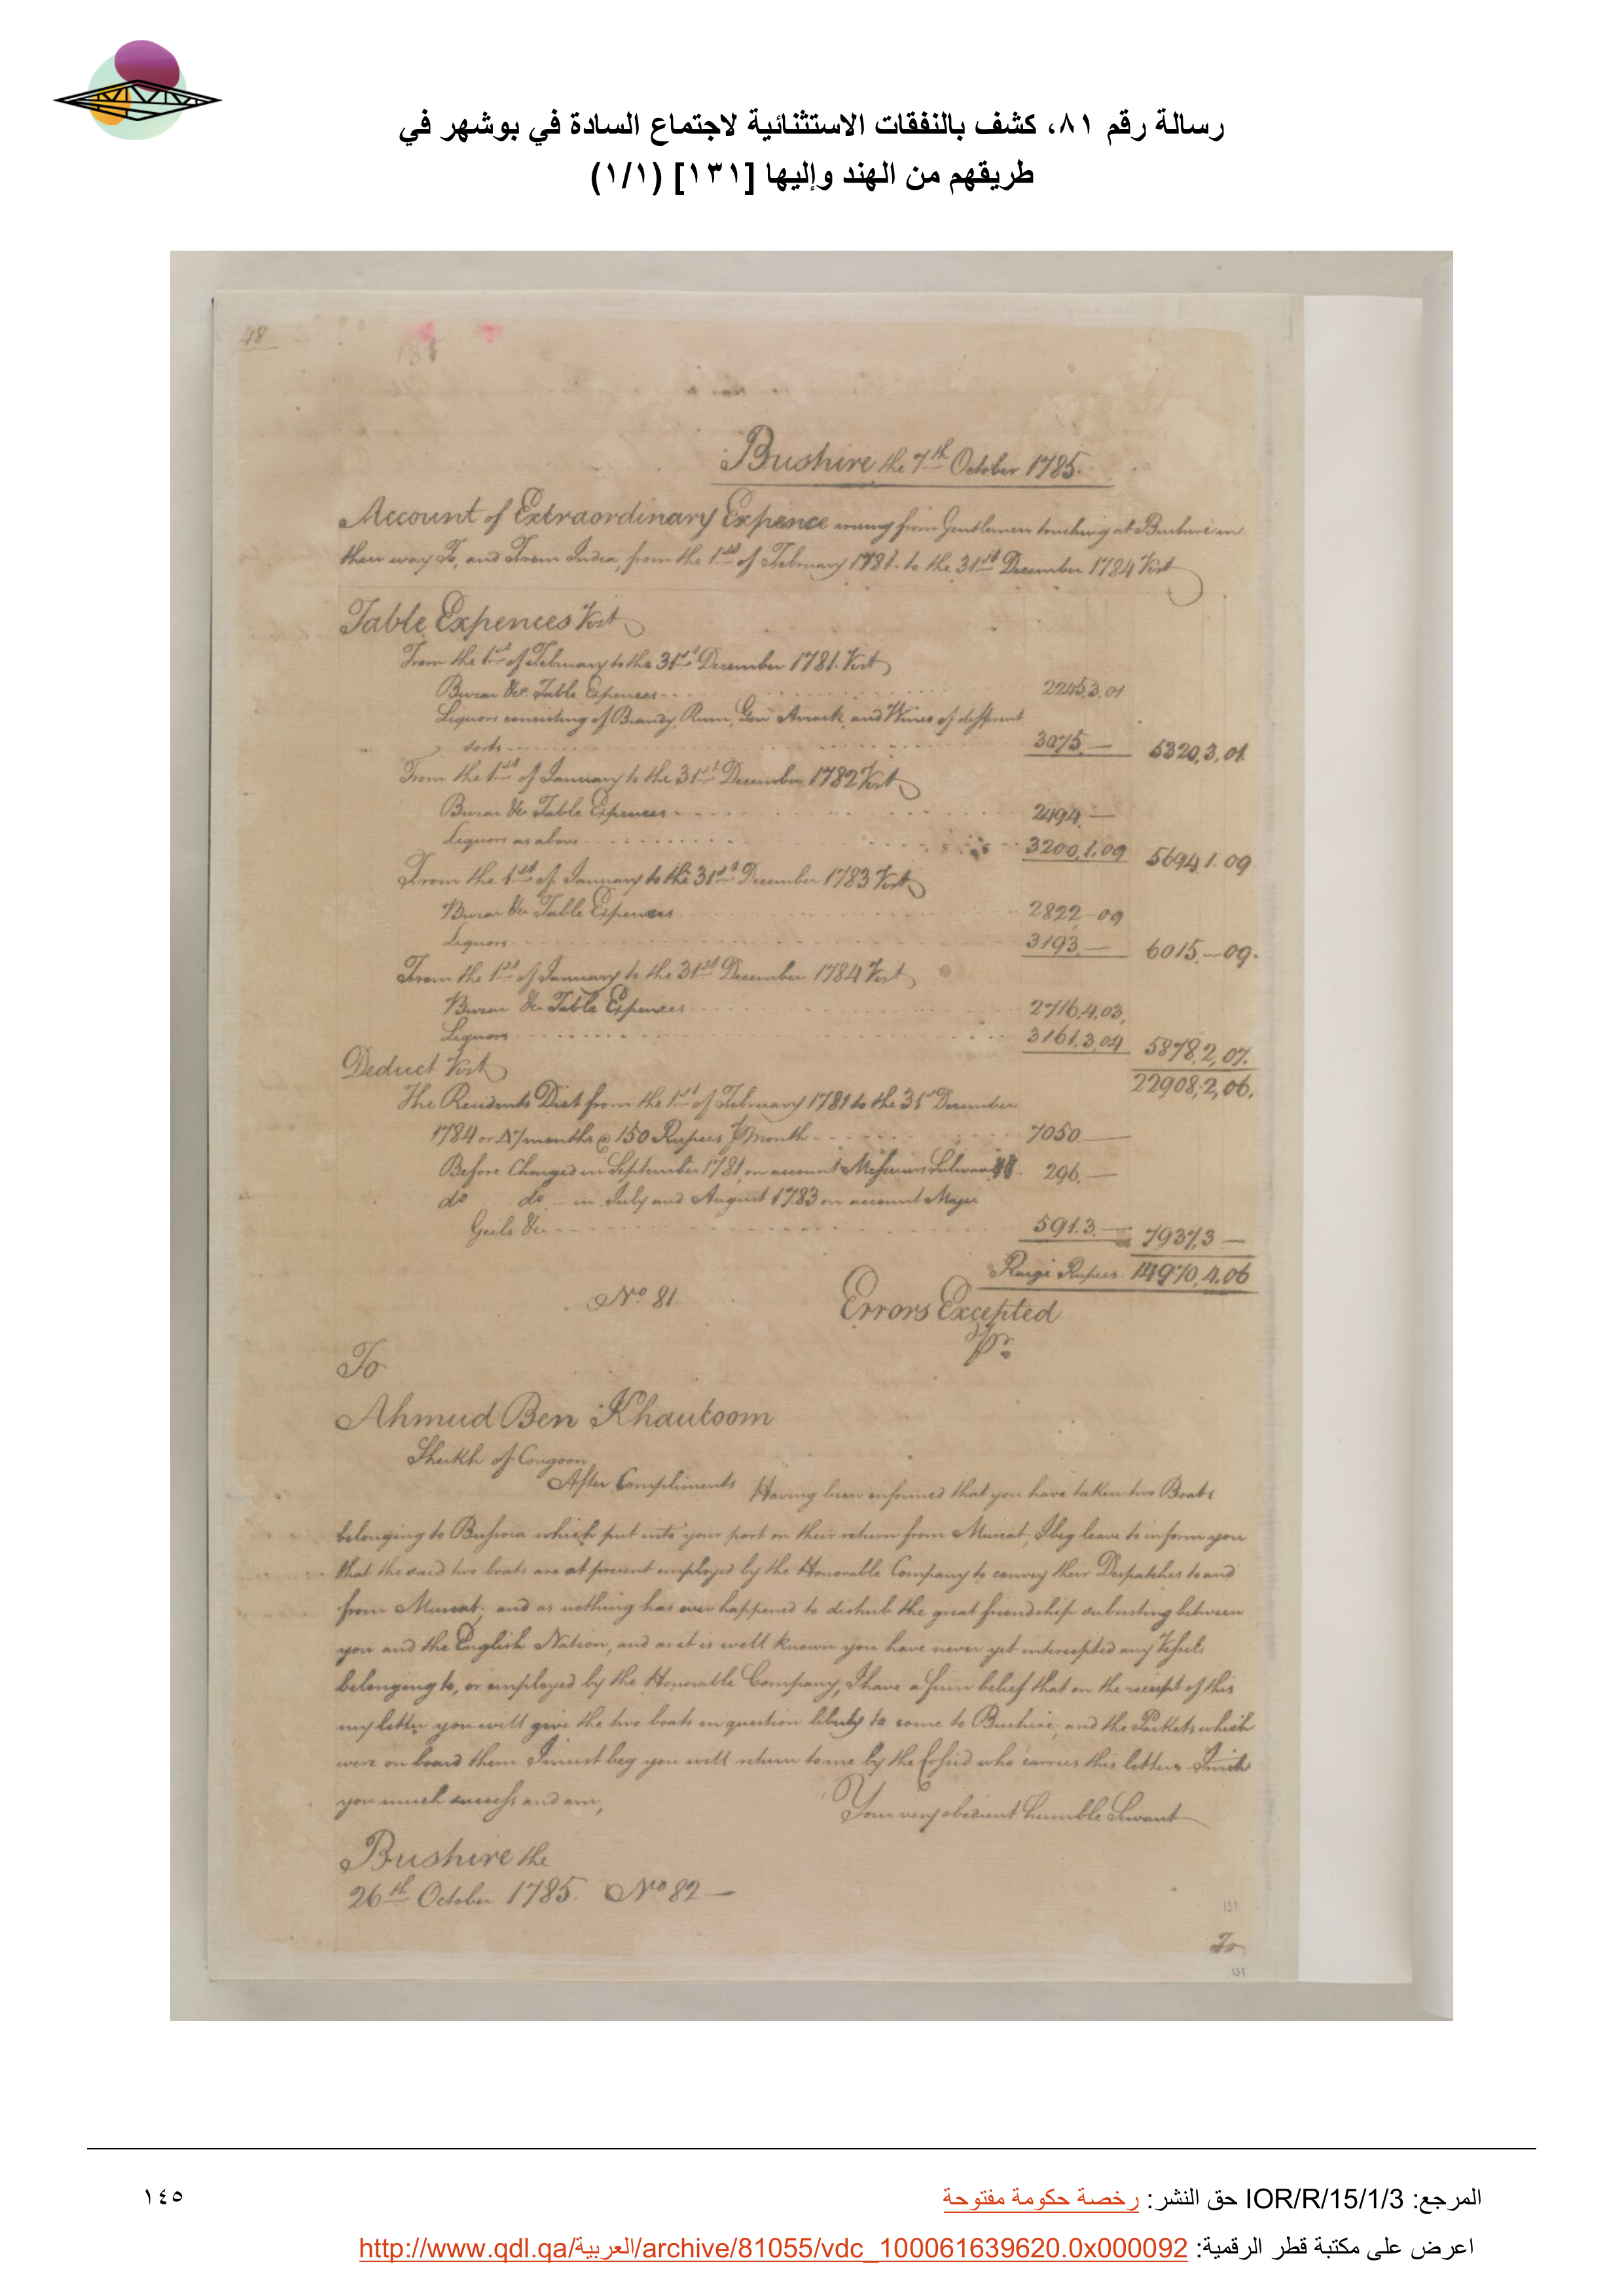 رسالة رقم ٨١، كشف بالنفقات الاستثنائية لاجتماع السادة في بوشهر في
طريقهم من الهند وإليها [١٣١] (١/١)
48
Bushire the 7th October 1785.
Account of Extraordinary Expence arising from Gentlemen touching at Bushire in
their way To, and From India, from the 1st of February 1781. to the 31st December 1784 Vizt
Table Expences Vizt
From the 1st of February to the 31st December 1781. Vizt
Buzar &c. Table Expences 2245,3,01
Liquors consisting of Brandy, Rum, Gin Arrack, and Wines of different
sorts 3075 — 5320,3,01
From the 1st of January to the 31st December 1782 Vizt
Buzar &c Table Expences 2494 —
Liquors as above 3200,1.09 5694,1.09
From the 1st of January to the 31st December 1783 Vizt
Buzar &c Table Expences 2822 - 09
Liquors 3193 — 6015, — 09.
From the 1st of January to the 31st December 1784 Vizt
Buzar &c Table Expences 2716,4,03,
Liquors 3161,3,04 5878,2,07.
Deduct Vizt 22908,2,06.
The Residents Diet from the 1st of February 1781 to the 31st December
1784 or 47 months @ 150 Rupees P Month 7050 —
Before Charged in September 1781, on account Messieurs 296. —
do do — in July and August 1783 on account Major
&c 591.3. — 7937,3 —
Rupees 14970,4.06
No 81.
Errors Excepted
Pr.
To
Ahmud Ben Khautoom
Sheikh of Congoon
After Compliments Having been informed that you have taken two Boats
belonging to Bussora which put into your port on their return from Muscat, I beg leave to inform you
that the said two boats are at present employed by the Honorable Company to convey their Despatches to and
from Muscat; and as nothing has ever happened to disturb the great friendship subsisting between
you and the English Nation, and as it is well known you have never yet intercepted any Vessels
belonging to, or employed by the Honorable Company, I have a firm belief that on the receipt of this
my letter you will give the two boats in question liberty to come to Bushire, and the Packets which
were on board them I must beg you will return to me by the Cossid who carries this letter. I wish
you much success and am,
Your very obedient humble Servant
Bushire the
26th October 1785. No 82 —
131
To
131
المرجع: IOR/R/15/1/3 حق النشر: رخصة حكومة مفتوحة
١٤٥
اعرض على مكتبة قطر الرقمية: http://www.qdl.qa/العربية/archive/81055/vdc_100061639620.0x000092